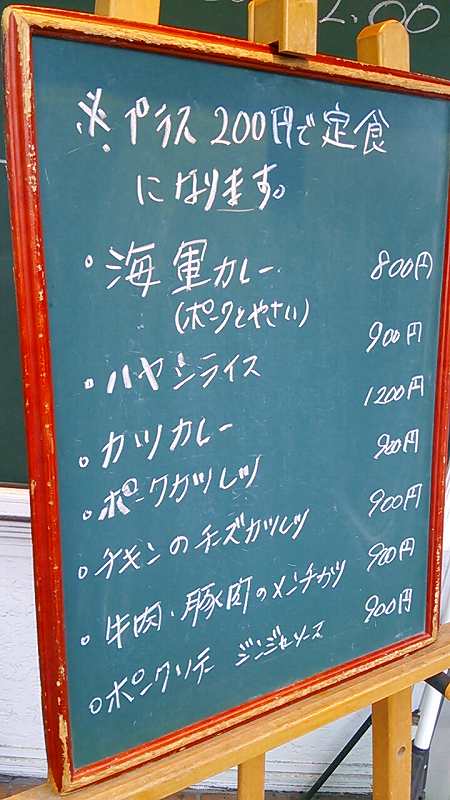 2.00
※プラス200円で定食
になります。
・海軍カレー 800円
(ポークとやさい)
・ハヤシライス 900円
・カツカレー 1200円
・ポークカツレツ 900円
・チキンのチーズカツレツ 900円
・牛肉・豚肉のメンチカツ 900円
・ポークソテー ジンジャーソース 900円